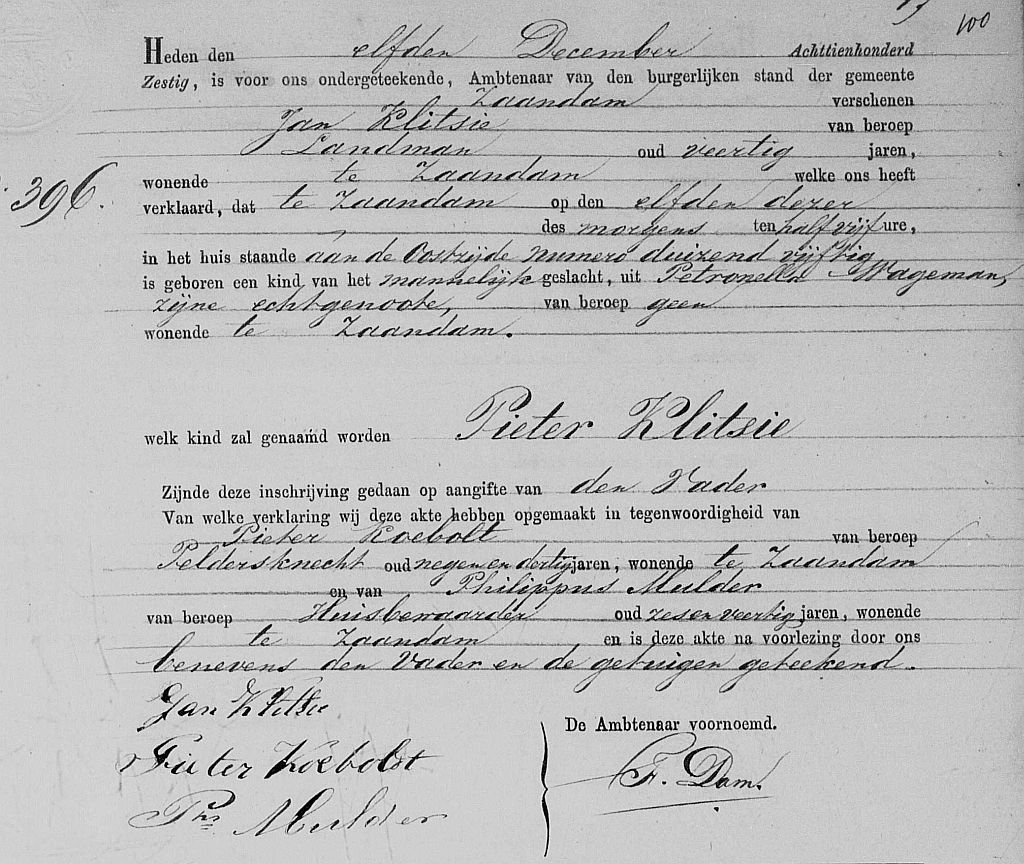 100
Heden den elfden December Achttienhonderd
Zestig, is voor ons ondergeteekende, Ambtenaar van den burgerlijken stand der gemeente
Zaandam verschenen
Jan Klitsie van beroep
Landman oud veertig jaren,
wonende te Zaandam welke ons heeft
396.
verklaard, dat te Zaandam op den elfden dezer
des morgens ten half vijf ure,
in het huis staande aan de Oostzijde numero duizend vijftig
is geboren een kind van het mannelijk geslacht, uit Petronella Wageman,
zijne echtgenoote, van beroep geen
wonende te Zaandam.
welk kind zal genaamd worden Pieter Klitsie
Zijnde deze inschrijving gedaan op aangifte van den Vader
Van welke verklaring wij deze akte hebben opgemaakt in tegenwoordigheid van
Pieter Koebolt van beroep
Peldersknecht oud negen en dertig jaren, wonende te Zaandam
en van Philippus Mulder
van beroep Huisbewaarder oud zes en veertig jaren, wonende
te Zaandam en is deze akte na voorlezing door ons
benevens den Vader en de getuigen geteekend.
Jan Klitsie
De Ambtenaar voornoemd.
Pieter Koebolst
F. Dam.
Phs Mulder